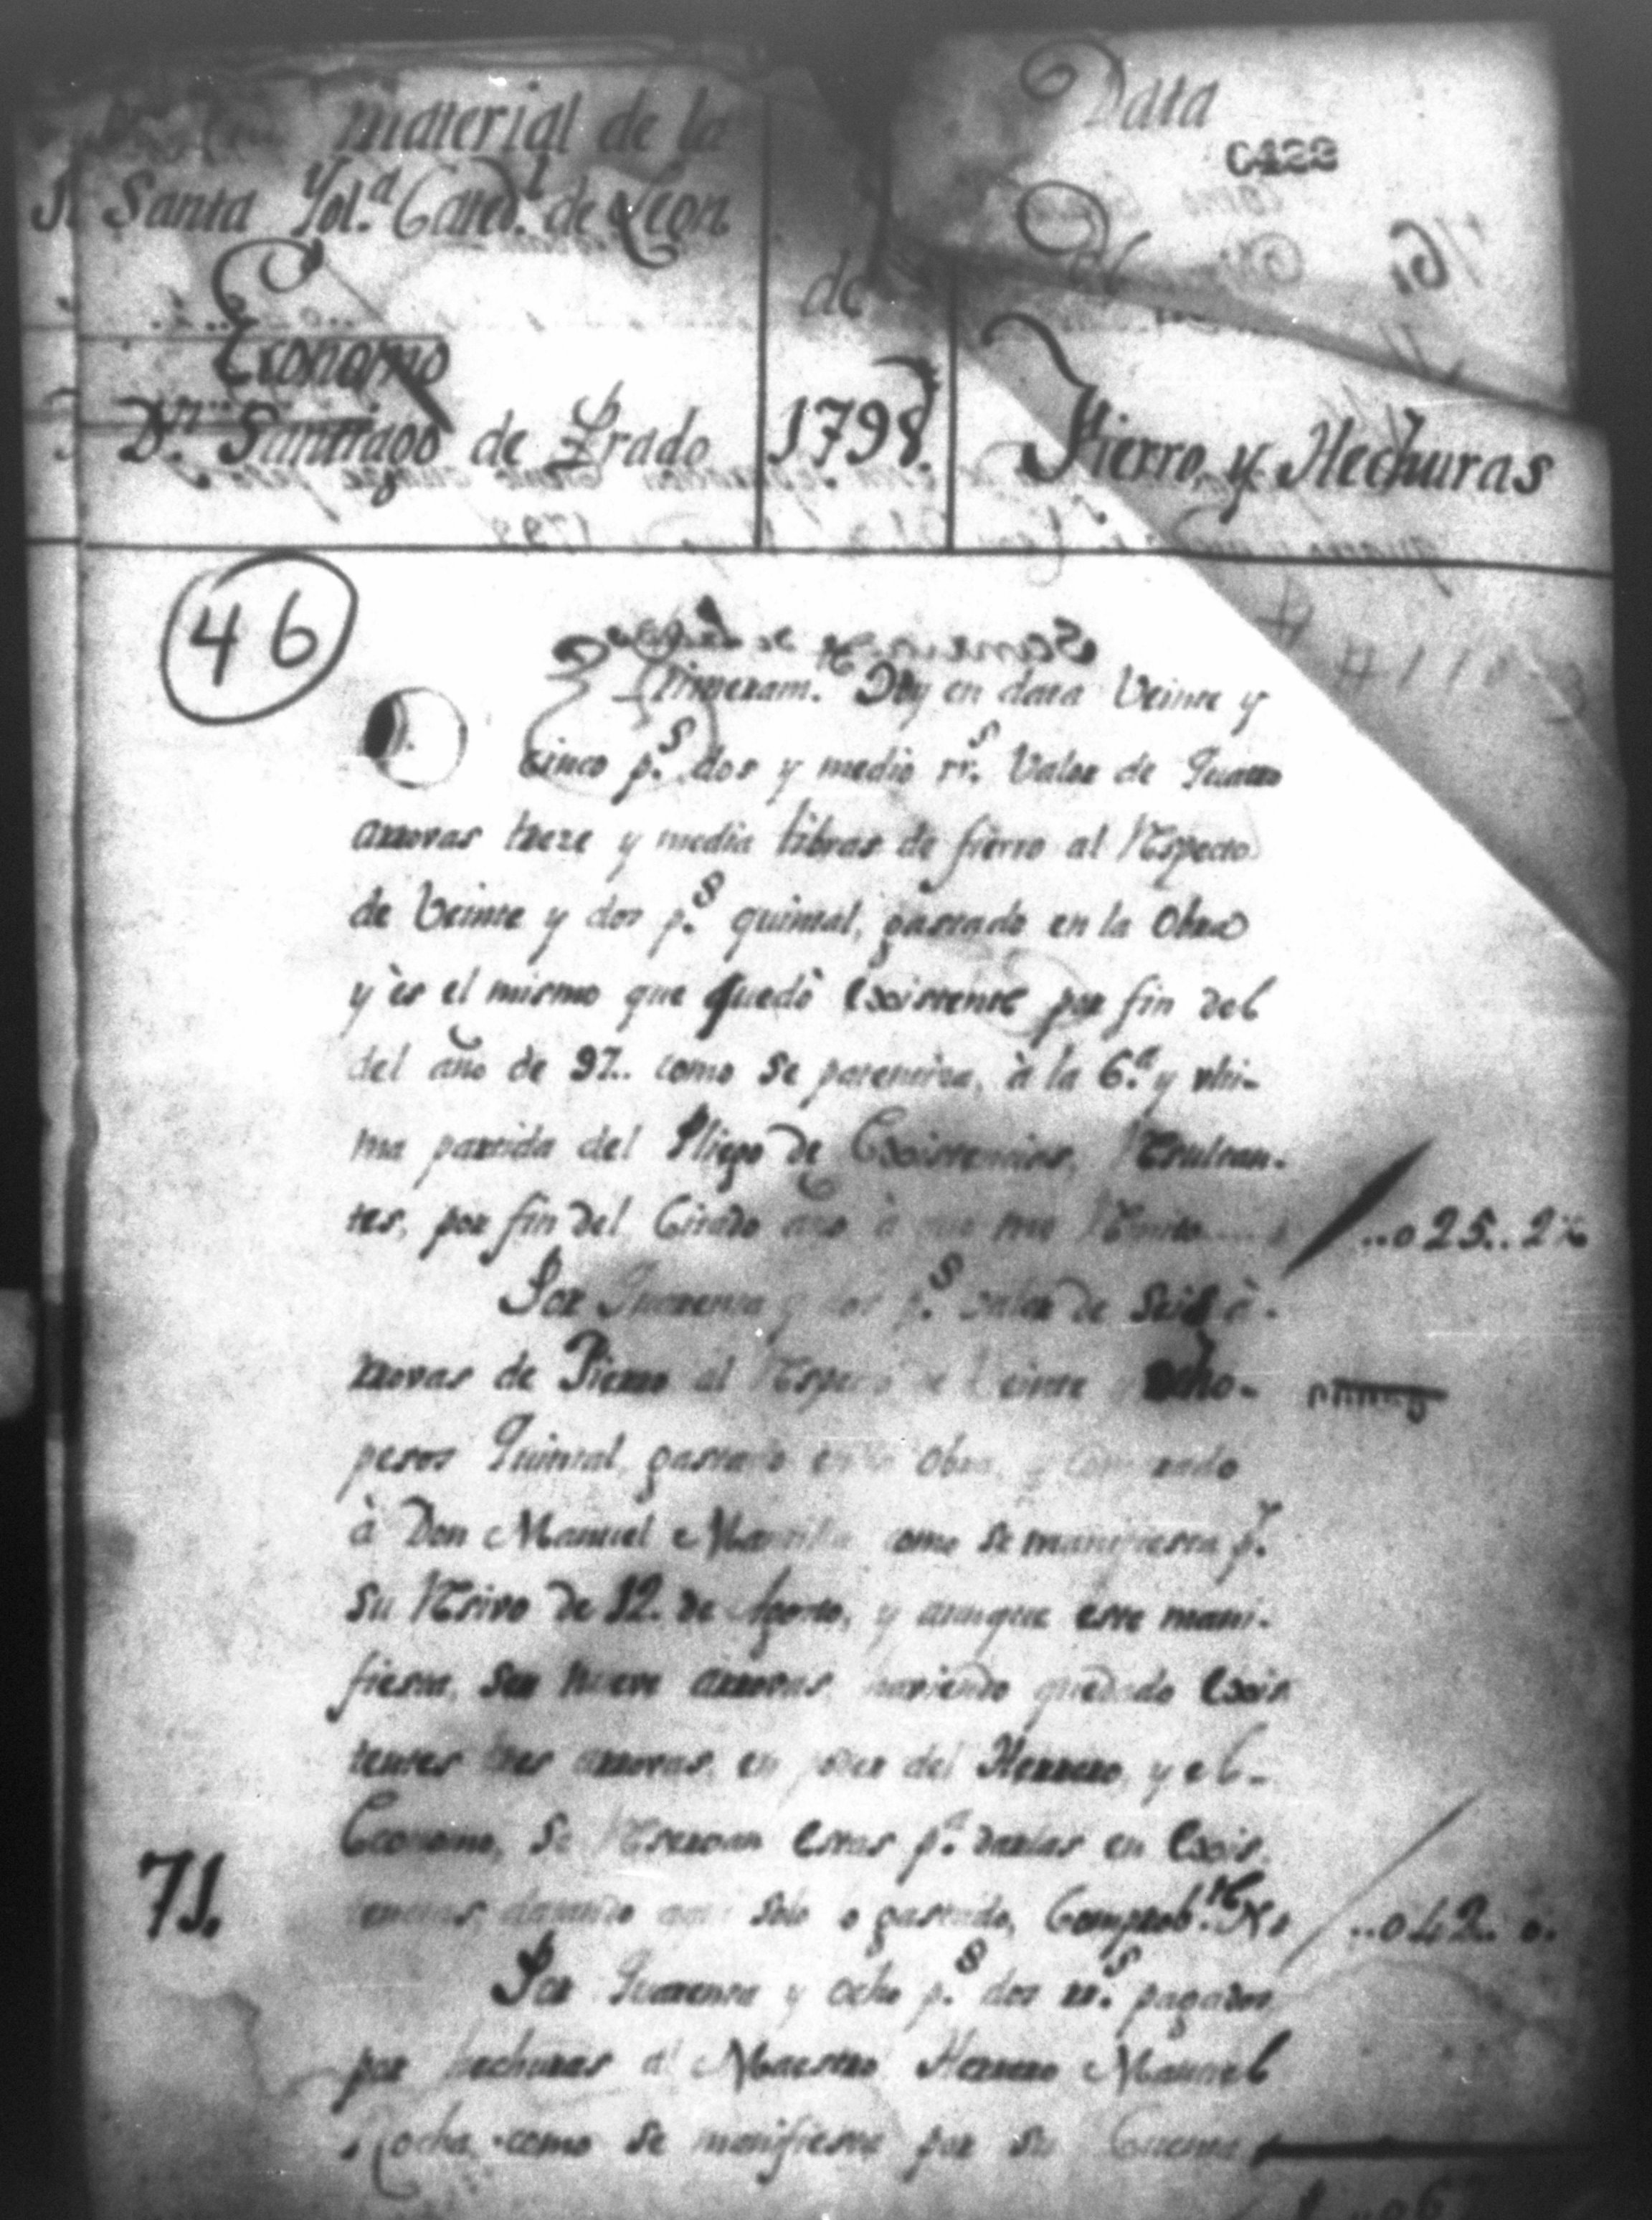 material de la
Santa Ygl.ª Cated.l de Leon.
Economo
Dn. Santiago de Prado
de
1798.
Data
0422
De
Fierro, y Hechuras
46
Primeram.te Doy en data Veinte y
cinco p.s dos y medio rr.s Valor de Quatro
arrovas treze y media libras de fierro al Respecto
de Veinte y dos p.s quintal, gastado en la Obra
y ès el mismo que quedò Existente por fin del
del año de 97.. como se patentiza, à la 6.ª y ulti-
ma partida del Pliego de Existencias, Resultan-
tes, por fin del Citado año à que me Remito
..025..2½
Por Quarenta y dos p.s valor de Seis à-
rrovas de Fierro al Respecto de Veinte y ocho-
pesos Quintal, gastado en la Obra, y comprado
à Don Manuel Mantilla como se manifiesta p.r
su Resivo de 12. de Agosto, y aunque este mani-
fiesta, ser nueve arrovas, haviendo quedado Exis
tentes tres arrovas, en poder del Herrero, y el-
Economo, se Reservan estas p.ª darlas en Exis
tencias, datando aqui solo o gastado, Comprob.te No
71.
..042.. 0.
Por Quarenta y ocho p.s dos rr.s pagados
por hechuras al Maestro Herrero Manuel
Rocha como se manifiesta por su Cuenta